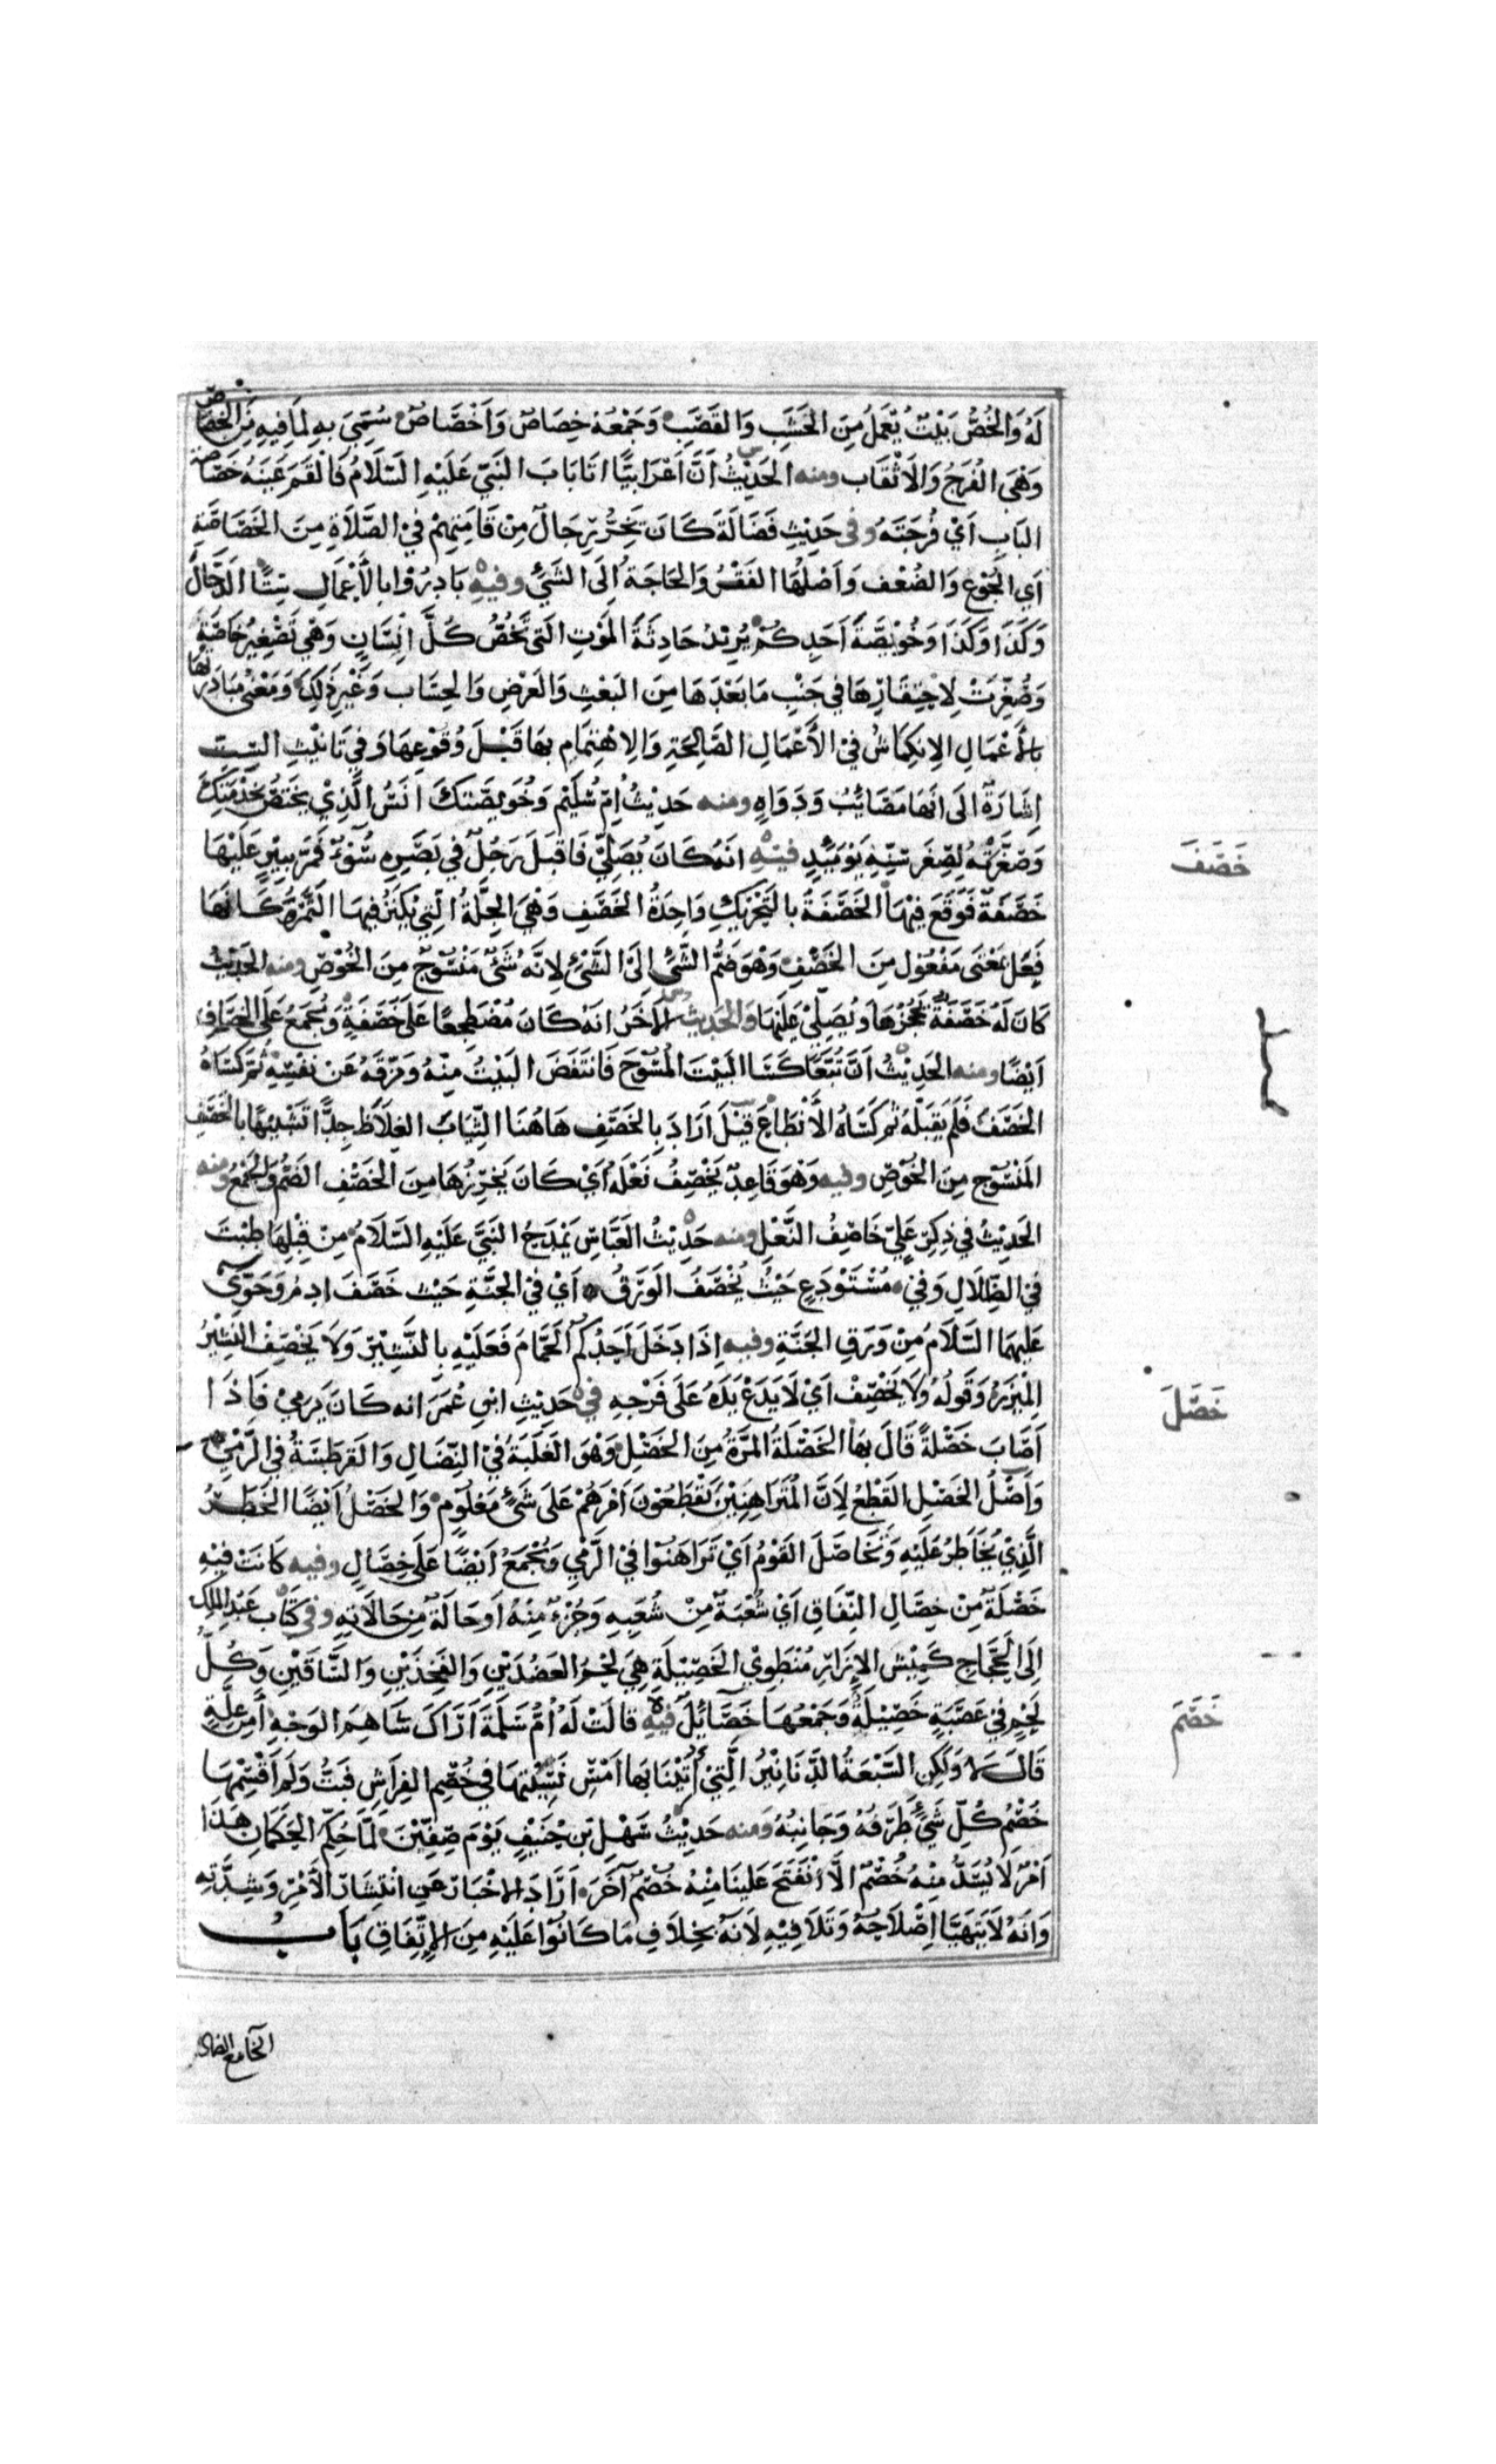 لَهُ وَالخُصُّ بَيْتٌ يُعْمَلُ مِنَ الخَشَبِ وَالقَصَبِ وَجَمْعُهُ خِصَاصٌ وَأَخْصَاصٌ سُمِّيَ بِهِ لِمَا فِيهِ مِنَ الخِصَاصِ
وَهْيَ الفُرَجُ وَالأَثْقَاب ومنه الحَدِيْثُ أَنَّ أَعْرَابِيًّا اتَا بَابَ النَبِيّ عَلَيْهِ السَّلَامُ فَالْقَمَ عَيْنَهُ خَصَاصَةَ
البَابِ أَيْ فُرْجَتَهُ وفى حَدِيْثِ فَضَالَةَ كَانَ يَخِرُّ رِجَالٌ مِنْ قَامَتِهِمْ فِيْ الصَّلَاةِ مِنَ الخَصَاصَةِ
أَيِ الجُوْعِ وَالضُعْفِ وَأَصْلُهَا الفَقْرُ وَالحَاجَةُ إِلَى الشَيْئِ وفيهِ بَادِرُوْا بِالأَعْمَالِ سِتًّا الدَّجَّالَ
وَكَذَا وَكَذَا وَخُوَيْصَّةَ أَحَدِكُمْ يُرِيْدُ حَادِثَةَ المَوْتِ الَتِي تَخُصُّ كُلَّ إِنْسَانٍ وَهْيَ تَصْغِيْرُ خَاصَّةٍ
وَصُغِّرَتْ لِاحْتِقَارِهَا فِي جَنْبِ مَا بَعْدَهَا مِنَ البَعْثِ وَالعَرْضِ وَالحِسَابِ وَغَيْرِ ذَلِكَ وَمَعْنَى مُبَادَرَتِهَا
بِالأَعْمَالِ الإِنكِمَاشُ فِيْ الأَعْمَالِ الصَّالِحَةِ وَالِاهْتِمَامِ بِهَا قَبْلَ وُقُوْعِهَا وَفِي تَانِيْثِ السِّتِّ
إِشَارَةٌ الَى انَهَا مَصَائِبُ وَدَوَاهٍ ومنه حَدِيْثُ أُمِّ سُلَيْمٍ وَخُوَيْصَّتُكَ أَنَسٌ الَّذِيْ يَخْتَصُّ بِخِدْمَتِكَ
وَصَغَّرَتْهُ لِصِغَرِ سِنِّهِ يَوْمَئِذٍ فيهِ انَهُ كَانَ يُصَلِّيْ فَاقْبَلَ رَجُلٌ فِي بَصَرِهِ سُوْءٌ فَمَرَّ بِبِئْرٍ عَلَيْهَا
خَصَفَةٌ فَوَقَعَ فِيْهَا الخَصَفَةُ بِالتَحْرِيْكِ وَاحِدَةُ الخَصَفِ وَهْيَ الجُلَّةُ الَتِيْ يُكْنَزُ فِيهَا التَّمْرُ كَأَنَهَا
فَعِلٌ بِمَعْنَى مَفْعُوْلٍ مِنَ الخَصْفِ وَهْوَ ضَمُّ الشَّيْئِ إِلَى الشَّيْئِ لِانَّهُ شَيْءٌ مَنْسُوْجٌ مِنَ الخُوْصِ ومنه الحَدِيْثُ
كَانَ لَهُ خَصَفَةٌ يَحْجُرُهَا وَيُصَلِّيْ عَلَيْهَا وَالحَدِيثُ الآخَرُ انَهُ كَانَ مُضْطَجِعًا عَلَى خَصَفَةٍ وَتُجْمَعُ عَلَى الخِصَافِ
أَيْضًا ومنه الحَدِيْثُ أَنَّ تُبَّعًا كَسَا البَيْتَ المُسُوْحَ فَانتَفَضَ البَيْتُ مِنْهُ وَمَزَّقَهُ عَنْ نَفْسِهِ ثُمَّ كَسَاهُ
الخَصَفَ فَلَمْ يَقْبَلْهُ ثُمَّ كَسَاهُ الأَنْطَاعَ قِيْلَ أَرَادَ بِالخَصَفِ هَاهُنَا الثِّيَابَ الغِلَاظَ جِدًّا تَشْبِيْهًا بِالخَصَفِ
المَنْسُوْجِ مِنَ الخُوْصِ وفيه وَهْوَ قَاعِدٌ يَخْصِفُ نَعْلَهُ أَيْ كَانَ يَخْرِزُهَا مِنَ الخَصْفِ الضَمِّ وَالجَمْعِ ومنه
الحَدِيْثُ فِي ذِكْرِ عَلِيٍّ خَاصِفُ النَّعْلِ ومنه حَدِيْثُ العَبَّاسِ يَمْدَحُ النَبِيَّ عَلَيْهِ السَّلَامُ مِنْ قَبْلِهَا طِبْتَ
فِي الظِّلَالِ وَفِيْ مُسْتَوْدَعٍ حَيْثُ يُخْصَفُ الوَرَقُ أَيْ فِيْ الجَنَّةِ حَيْثُ خَصَفَ ادمُ وَحَوَّى
عَلَيْهِمَا السَّلَامُ مِنْ وَرَقِ الجَنَّةِ وفيه إِذَا دَخَلَ أَحَدُكُمُ الحَمَّامَ فَعَلَيْهِ بِالنَّشِيْرِ وَلَا يَخْصِفْ النَشِيْرُ
المِيْزَرُ وَقَوْلُهُ وَلَا يَخْصِفْ أَيْ لَا يَدَعْ يَدَهُ عَلَى فَرْجِهِ في حَدِيْثِ ابْنِ عُمَرَ انه كَانَ يَرْمِيْ فَإِذَا
أَصَابَ خَصْلَةً قَالَ بِهَا الخَصْلَةُ المَرَّةُ مِنَ الخَصْلِ وَهْوَ الغَلَبَةُ فِيْ النِّضَالِ وَالقَرْطَسَةُ فِي الرَّمْيِ
وَأَصْلُ الخَصْلِ القَطْعُ لِأَنَّ المُتَرَاهِنِيْنَ يَقْطَعُوْنَ أَمْرَهُمْ عَلَى شَيْءٍ مَعْلُوْمٍ وَالخَصْلُ أَيْضًا الخَطَرُ
الَّذِيْ يُخَاطَرُ عَلَيْهِ وَتَخَاصَلَ القَوْمُ أَيْ تَرَاهَنُوْا فِيْ الرَّمْيِ وَيُجْمَعُ أَيْضًا عَلَى خِصَالٍ وفيه كَانَتْ فِيْهِ
خَصْلَةٌ مِنْ خِصَالِ النِّفَاقِ أَيْ شُعْبَةٌ مِنْ شُعَبِهِ وَجُزْءٌ مِنْهُ أَو حَالَةٌ مِنْ حَالَاتِهِ وفى كِتَابِ عَبْدِ المَلِكِ
إِلَى الحَجَّاجِ كَمِيْشَ الإِزَارِ مُنْطَوِيْ الخَصِيْلَةِ هِيَ لَحْمُ العَضُدَيْنِ وَالفَخِذَيْنِ وَالسَّاقَيْنِ وَكُلُّ
لَحْمٍ فِي عَصَبَةٍ خَصِيْلَةٌ وَجَمْعُهَا خَصَائِلُ فيهِ قَالَتْ لَهُ أُمُّ سَلَمَةَ أَرَاكَ سَاهِمَ الوَجْهِ أَمِنْ عِلَّةٍ
قَالَ لَا وَلَكِنِ السَّبْعَةُ الدَّنَانِيْرُ الَّتِيْ أُتِيْنَا بِهَا أَمْسِ نَسِيْتُهَا فِي خُصْمِ الفِرَاشِ فَبِتُّ وَلَم أَقْسِمْهَا
خُصْمُ كُلِّ شَيْءٍ طَرَفُهُ وَجَانِبُهُ ومنه حَدِيْثُ سَهْلِ بْنِ حُنَيْفٍ يَوْمَ صِفِّيْنَ لَمَّا حُكِّمَ الحَكَمَانِ هَذَا
أَمْرٌ لَا يُسَدُّ مِنْهُ خُصْمٌ الَّا انْفَتَحَ عَلَيْنَا مِنْهُ خُصْمٌ آخَرَ أَرَادَ الإِخْبَارَ عَنِ انْتِشَارِ الأَمْرِ وَشِدَّتِهِ
وَانَهُ لَا يَتَهَيَّا إِصْلَاحُهُ وَتَلَافِيْهِ لِانَهُ بِخِلَافِ مَا كَانُوْا عَلَيْهِ مِنَ الإِتِّفَاقِ بَابُ
خَصَفَ
خَصَلَ
خَصَمَ
الخا مع الضاد